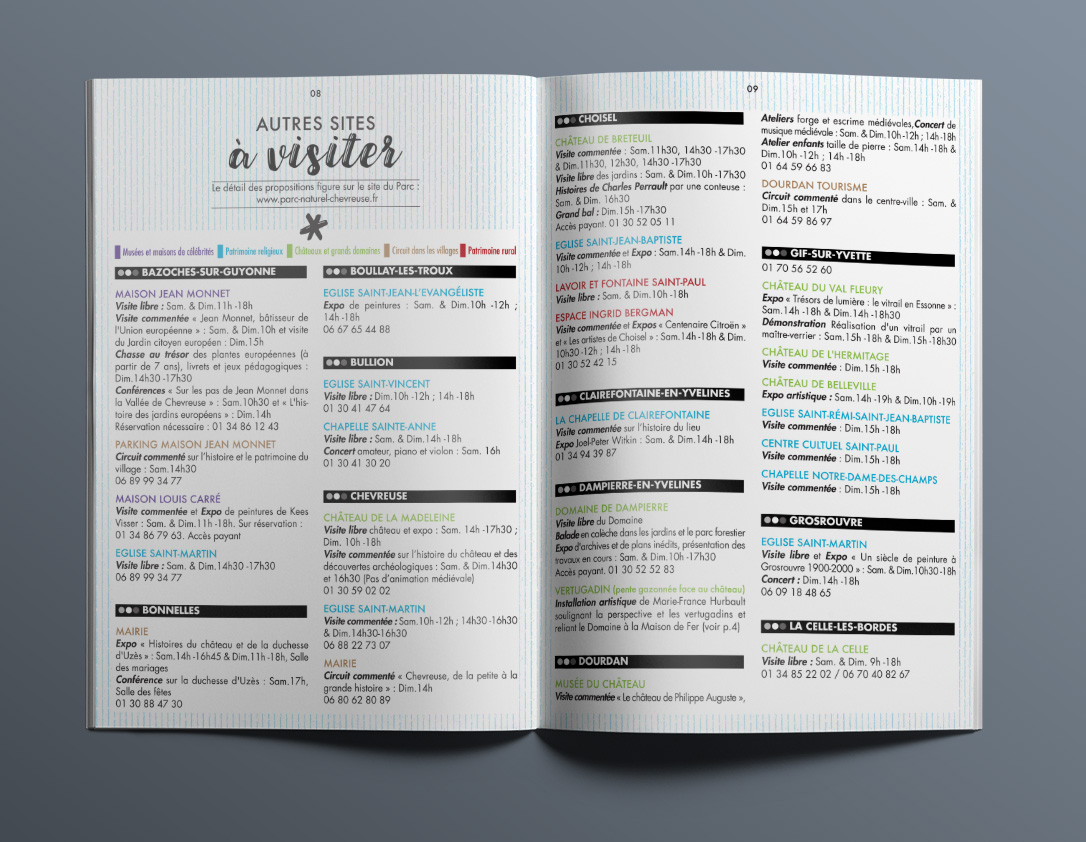 08
AUTRES SITES
à visiter
Le détail des propositions figure sur le site du Parc :
www.parc-naturel-chevreuse.fr
Musées et maisons de célébrités Patrimoine religieux Châteaux et grands domaines Circuit dans les villages Patrimoine rural
BAZOCHES-SUR-GUYONNE
MAISON JEAN MONNET
Visite libre : Sam. & Dim.11h -18h
Visite commentée « Jean Monnet, bâtisseur de
l'Union européenne » : Sam. & Dim.10h et visite
du Jardin citoyen européen : Dim.15h
Chasse au trésor des plantes européennes (à
partir de 7 ans), livrets et jeux pédagogiques :
Dim.14h30 -17h30
Conférences « Sur les pas de Jean Monnet dans
la Vallée de Chevreuse » : Sam.10h30 et « L'his-
toire des jardins européens » : Dim.14h
Réservation nécessaire : 01 34 86 12 43
PARKING MAISON JEAN MONNET
Circuit commenté sur l'histoire et le patrimoine du
village : Sam.14h30
06 89 99 34 77
MAISON LOUIS CARRÉ
Visite commentée et Expo de peintures de Kees
Visser : Sam. & Dim.11h -18h. Sur réservation :
01 34 86 79 63. Accès payant
EGLISE SAINT-MARTIN
Visite libre : Sam. & Dim.14h30 -17h30
06 89 99 34 77
BONNELLES
MAIRIE
Expo « Histoires du château et de la duchesse
d'Uzès » : Sam.14h -16h45 & Dim.11h -18h, Salle
des mariages
Conférence sur la duchesse d'Uzès : Sam.17h,
Salle des fêtes
01 30 88 47 30
BOULLAY-LES-TROUX
EGLISE SAINT-JEAN-L'EVANGÉLISTE
Expo de peintures : Sam. & Dim.10h -12h ;
14h -18h
06 67 65 44 88
BULLION
EGLISE SAINT-VINCENT
Visite libre : Dim.10h -12h ; 14h -18h
01 30 41 47 64
CHAPELLE SAINTE-ANNE
Visite libre : Sam. & Dim.14h -18h
Concert amateur, piano et violon : Sam. 16h
01 30 41 30 20
CHEVREUSE
CHÂTEAU DE LA MADELEINE
Visite libre château et expo : Sam. 14h -17h30 ;
Dim. 10h -18h
Visite commentée sur l'histoire du château et des
découvertes archéologiques : Sam. & Dim.14h30
et 16h30 (Pas d'animation médiévale)
01 30 59 02 02
EGLISE SAINT-MARTIN
Visite commentée : Sam.10h -12h ; 14h30 -16h30
& Dim.14h30-16h30
06 88 22 73 07
MAIRIE
Circuit commenté « Chevreuse, de la petite à la
grande histoire » : Dim.14h
06 80 62 80 89
09
CHOISEL
CHÂTEAU DE BRETEUIL
Visite commentée : Sam.11h30, 14h30 -17h30
& Dim.11h30, 12h30, 14h30 -17h30
Visite libre des jardins : Sam. & Dim.10h -17h30
Histoires de Charles Perrault par une conteuse :
Sam. & Dim. 16h30
Grand bal : Dim.15h -17h30
Accès payant. 01 30 52 05 11
EGLISE SAINT-JEAN-BAPTISTE
Visite commentée et Expo : Sam.14h -18h & Dim.
10h -12h ; 14h -18h
LAVOIR ET FONTAINE SAINT-PAUL
Visite libre : Sam. & Dim.10h -18h
ESPACE INGRID BERGMAN
Visite commentée et Expos « Centenaire Citroën »
et « Les artistes de Choisel » : Sam.14h -18h & Dim.
10h30 -12h ; 14h -18h
01 30 52 42 15
CLAIREFONTAINE-EN-YVELINES
LA CHAPELLE DE CLAIREFONTAINE
Visite commentée sur l'histoire du lieu
Expo Joel-Peter Witkin : Sam. & Dim.14h -18h
01 34 94 39 87
DAMPIERRE-EN-YVELINES
DOMAINE DE DAMPIERRE
Visite libre du Domaine
Balade en calèche dans les jardins et le parc forestier
Expo d'archives et de plans inédits, présentation des
travaux en cours : Sam. & Dim.10h -17h30
Accès payant. 01 30 52 52 83
VERTUGADIN (pente gazonnée face au château)
Installation artistique de Marie-France Hurbault
soulignant la perspective et les vertugadins et
reliant le Domaine à la Maison de Fer (voir p.4)
DOURDAN
MUSÉE DU CHÂTEAU
Visite commentée « Le château de Philippe Auguste »,
Ateliers forge et escrime médiévales,Concert de
musique médiévale : Sam. & Dim.10h -12h ; 14h -18h
Atelier enfants taille de pierre : Sam.14h -18h &
Dim.10h -12h ; 14h -18h
01 64 59 66 83
DOURDAN TOURISME
Circuit commenté dans le centre-ville : Sam. &
Dim.15h et 17h
01 64 59 86 97
GIF-SUR-YVETTE
01 70 56 52 60
CHÂTEAU DU VAL FLEURY
Expo « Trésors de lumière : le vitrail en Essonne » :
Sam.14h -18h & Dim.14h -18h30
Démonstration Réalisation d'un vitrail par un
maître-verrier : Sam.15h -18h & Dim.15h -18h30
CHÂTEAU DE L'HERMITAGE
Visite commentée : Dim.15h -18h
CHÂTEAU DE BELLEVILLE
Expo artistique : Sam.14h -19h & Dim.10h -19h
EGLISE SAINT-RÉMI-SAINT-JEAN-BAPTISTE
Visite commentée : Dim.15h -18h
CENTRE CULTUEL SAINT-PAUL
Visite commentée : Dim.15h -18h
CHAPELLE NOTRE-DAME-DES-CHAMPS
Visite commentée : Dim.15h -18h
GROSROUVRE
EGLISE SAINT-MARTIN
Visite libre et Expo « Un siècle de peinture à
Grosrouvre 1900-2000 » : Sam. & Dim.10h30 -18h
Concert : Dim.14h -18h
06 09 18 48 65
LA CELLE-LES-BORDES
CHÂTEAU DE LA CELLE
Visite libre : Sam. & Dim. 9h -18h
01 34 85 22 02 / 06 70 40 82 67